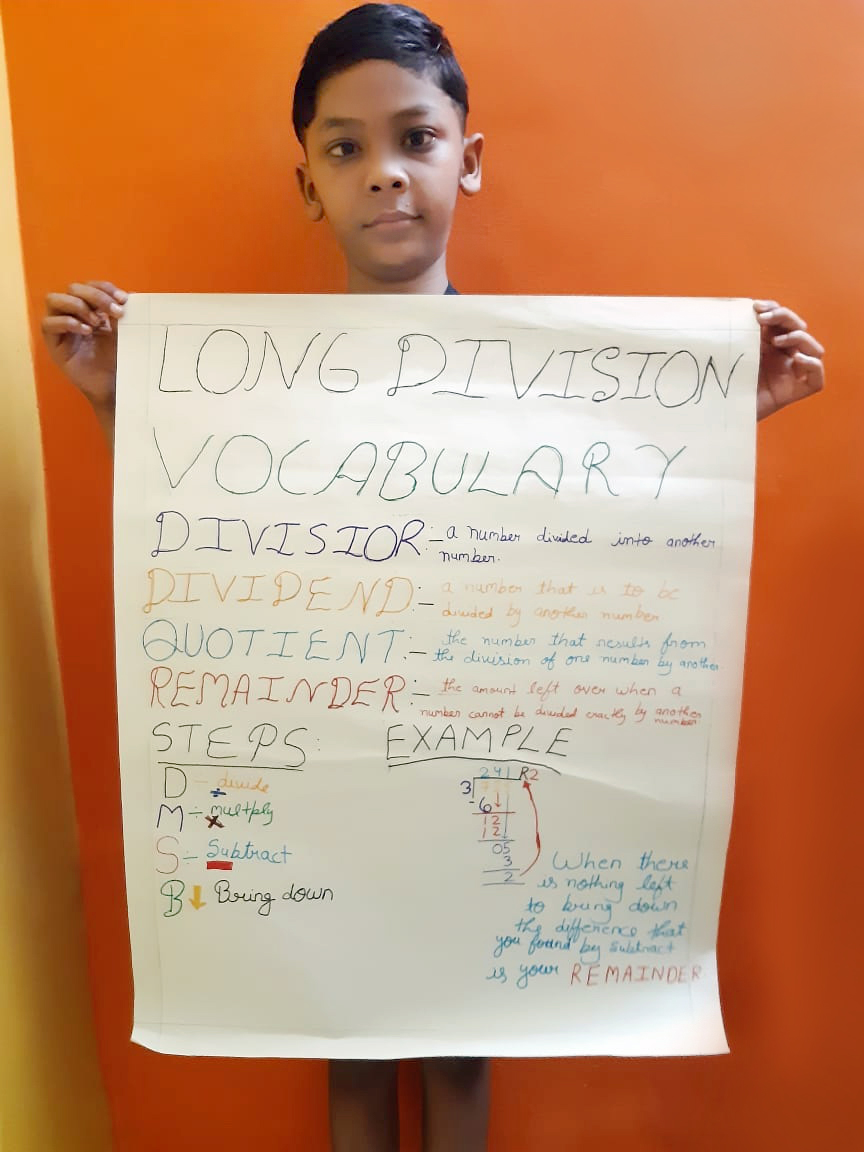 LONG DIVISION
VOCABULARY
DIVISIOR:- a number divided into another
number.
DIVIDEND:- a number that is to be
divided by another number
QUOTIENT:- the number that results from
the division of one number by another.
REMAINDER:- the amount left over when a
number cannot be divided exactly by another
number
STEPS:
D ÷ divide
M ÷ multply
S ÷ Subtract
B ↓ Bring down
EXAMPLE
241 R2
3
-6↓
12
12
05
3
2
When there
is nothing left
to bring down
the difference that
you found by subtract
is your REMAINDER.